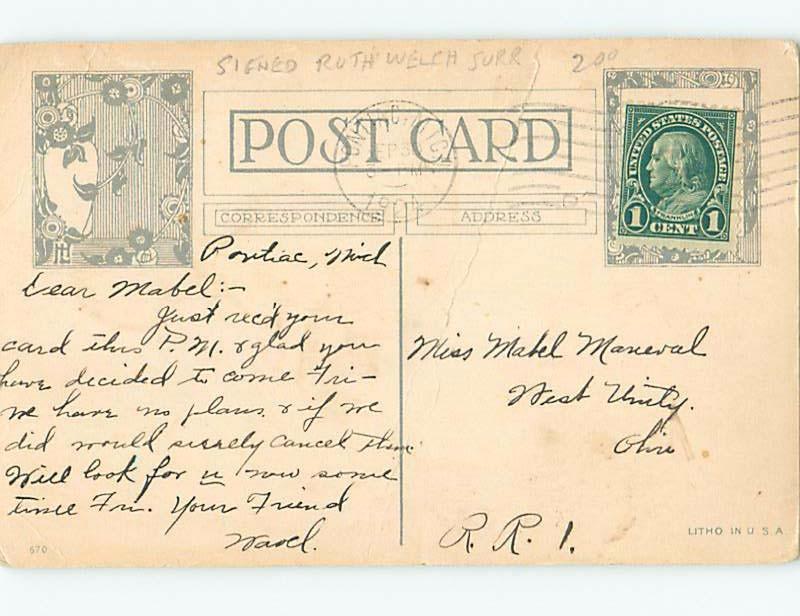 SIGNED RUTH WELCH SURR 200
POST CARD
1924
CORRESPONDENCE
ADDRESS
UNITED STATES POSTAGE
FRANKLIN
1 CENT 1
Pontiac, Mich
Dear Mabel:-
Just rec'd your
card this P.M. & glad you
have decided to come Fri-
we have no plans & if we
did would surely cancel them.
Will look for u now some
time Fri. Your Friend
Miss Mabel Maneval
West Unity.
Ohio
R. R. 1.
LITHO IN U.S.A.
670